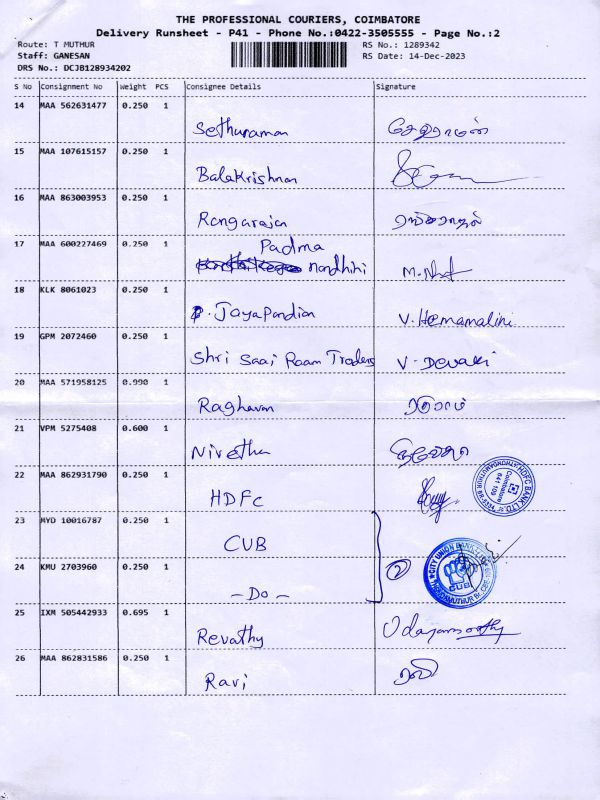 THE PROFESSIONAL COURIERS, COIMBATORE
Delivery Runsheet - P41 - Phone No.:0422-3505555 - Page No.:2
Route: T MUTHUR RS No.: 1289342
Staff: GANESAN RS Date: 14-Dec-2023
DRS No.: DCJB128934202
S No Consignment No Weight PCS Consignee Details Signature
14 MAA 562631477 0.250 1
Sethuraman சேதுராமன்
15 MAA 107615157 0.250 1
Balakrishnan
16 MAA 863003953 0.250 1
Rangarajan ரங்கராஜன்
17 MAA 600227469 0.250 1
Padma
nandhini
18 KLK 8061023 0.250 1
P. Jayapandian V. Hemamalini
19 GPM 2072460 0.250 1
Shri Saai Raam Traders V. Devaki
20 MAA 571958125 0.990 1
Raghavan
21 VPM 5275408 0.600 1
Nivetha
22 MAA 862931790 0.250 1
HDFC
HDFC BANK LTD.
Coimbatore
641 109
23 MYD 10016787 0.250 1
CUB
2
CITY UNION BANK LTD
CUB
24 KMU 2703960 0.250 1
- Do -
25 IXM 505442933 0.695 1
Revathy Udayamoorthy
26 MAA 862831586 0.250 1
Ravi ரவி